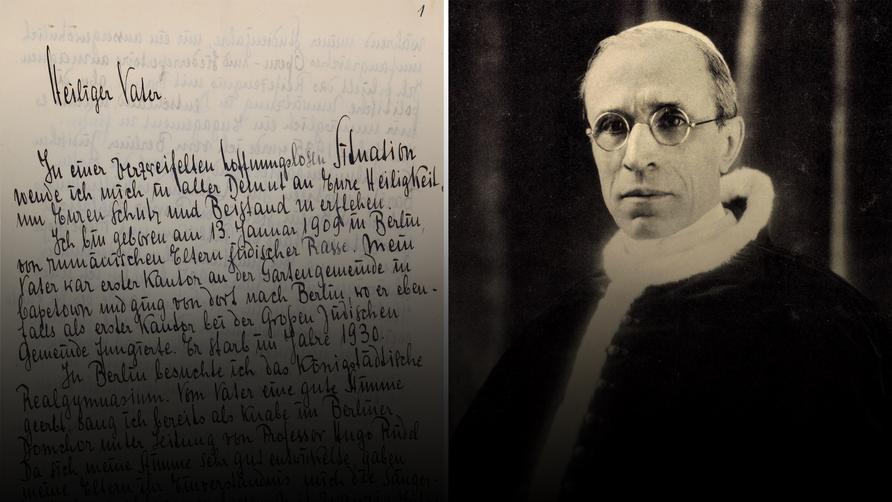 1
Heiliger Vater
In einer verzweifelten hoffnungslosen Situation
wende ich mich in aller Demut an Eure Heiligkeit,
um Euren Schutz und Beistand zu erflehen.
Ich bin geboren am 13. Januar 1909 in Berlin,
von rumänischen Eltern jüdischer Rasse. Mein
Vater war erster Kantor an der Gartengemeinde in
Capetown und ging von dort nach Berlin, wo er eben-
falls als erster Kantor bei der Großen Jüdischen
Gemeinde fungierte. Er starb im Jahre 1930.
In Berlin besuchte ich das Königstädtische
Realgymnasium. Vom Vater eine gute Stimme
geerbt, sang ich bereits als Knabe im Berliner
Domchor unter Leitung von Professor Hugo Rüdel
Da sich meine Stimme sehr gut entwickelte, gaben
meine Eltern ihr Einverständnis, mich die Sänger-